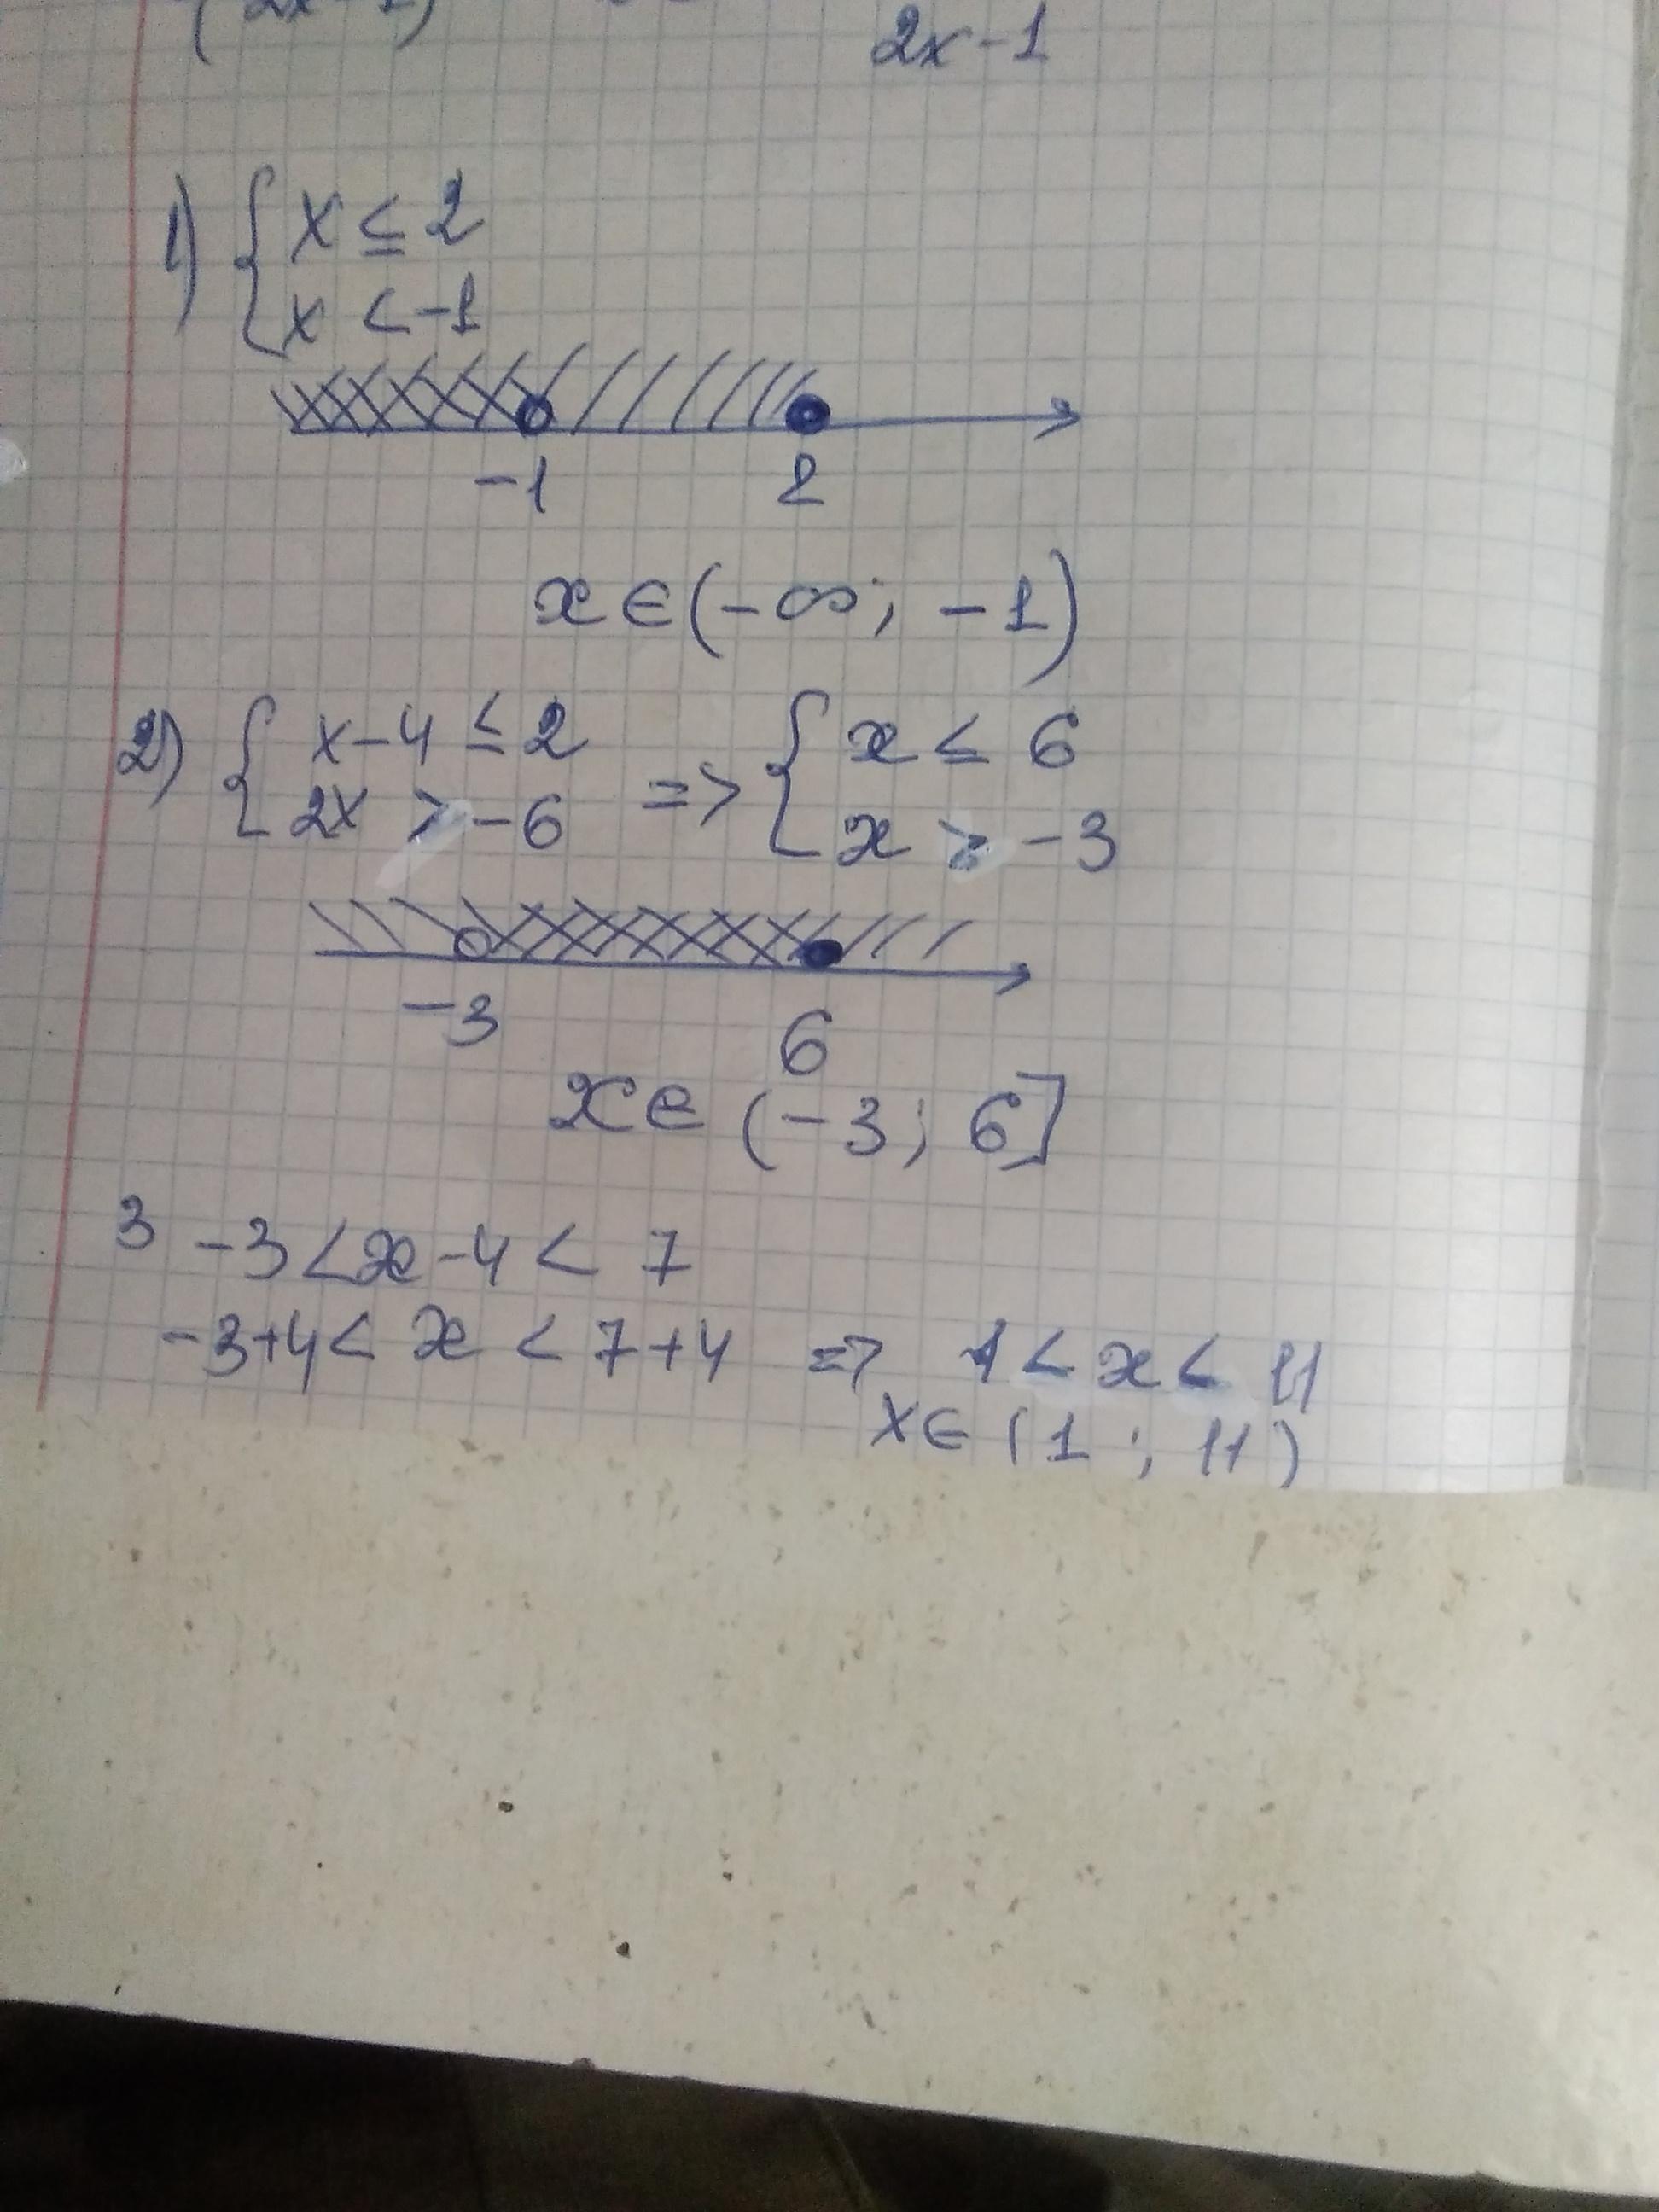 2x-1
1) { x ≤ 2
x < -1
-1 2
x ∈ (-∞; -1)
2) { x-4 ≤ 2 => { x ≤ 6
2x > -6 x > -3
-3 6
x ∈ (-3; 6]
3 -3 < x-4 < 7
-3+4 < x < 7+4 => 1 < x < 11
x ∈ (1; 11)